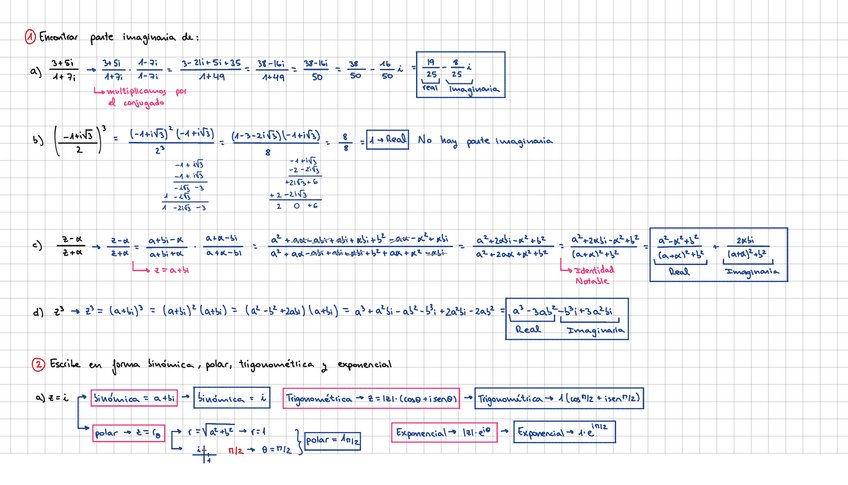 ① Encontrar parte imaginaria de:
a) (3+5i)/(1+7i) → (3+5i)/(1+7i) · (1-7i)/(1-7i) = (3-21i+5i+35)/(1+49) = (38-16i)/(1+49) = (38-16i)/50 = 38/50 - 16/50 i = 19/25 - 8/25 i
real Imaginaria
↳ multiplicamos por
el conjugado
b) ((-1+i√3)/2)³ = ((-1+i√3)²(-1+i√3))/2³ = ((1-3-2i√3)(-1+i√3))/8 = 8/8 = 1 → Real No hay parte imaginaria
-1+i√3
-1+i√3
-i√3 -3
1 -i√3
1 -2i√3 -3
-1+i√3
-2-2i√3
+2i√3+6
+2-2i√3
2 0 +6
c) (z-α)/(z+α) → (z-α)/(z+α) = (a+bi-α)/(a+bi+α) · (a+α-bi)/(a+α-bi) = = (a²+2αbi-α²+b²)/(a²+2aα+α²+b²) = (a²+2αbi-α²+b²)/((a+α)²+b²) = (a²-α²+b²)/((a+α)²+b²) + 2αbi/((a+α)²+b²)
Real Imaginaria
↳ z=a+bi
↳ Identidad
Notable
d) z³ → z³ = (a+bi)³ = (a+bi)²(a+bi) = (a²-b²+2abi)(a+bi) = a³+a²bi-ab²-b³i+2a²bi-2ab² = a³-3ab²-b³i+3a²bi
Real Imaginaria
② Escribe en forma binómica, polar, trigonométrica y exponencial
a) z=i binómica = a+bi → binómica = i Trigonométrica → z=|z|·(cosθ+isenθ) → Trigonométrica → 1(cos π/2 + i sen π/2)
polar → z=rθ r=√(a²+b²) → r=1
i 1 π/2 → θ=π/2
polar = 1π/2
Exponencial → |z|·e^(iθ) → Exponencial → 1·e^(iπ/2)